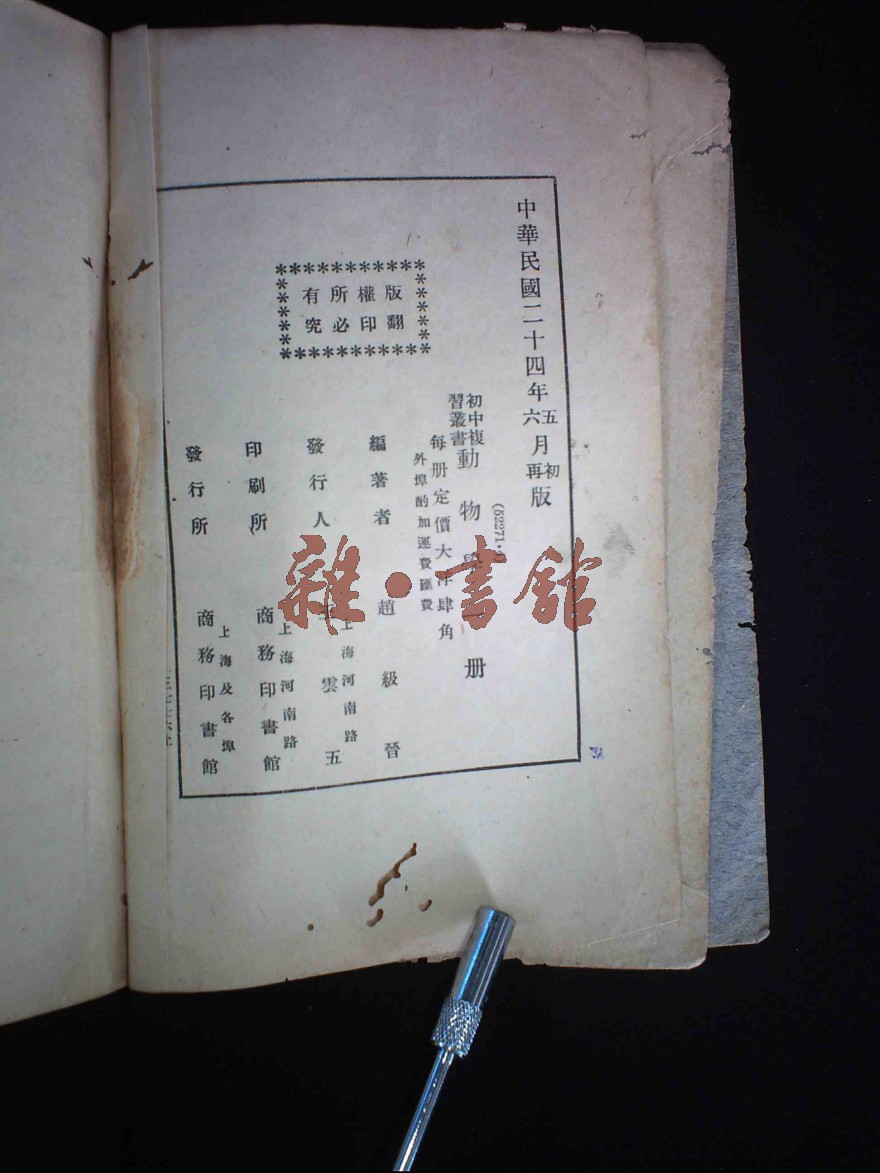 中華民國二十四年五六月初再版
(52271·4)
初中複習叢書動物學 册
每册定價大洋肆角
外埠酌加運費匯費
版權所有
翻印必究
編著者 趙級晉
上海河南路
發行人 王雲五
上海河南路
印刷所 商務印書館
上海及各埠
發行所 商務印書館
雜·書館